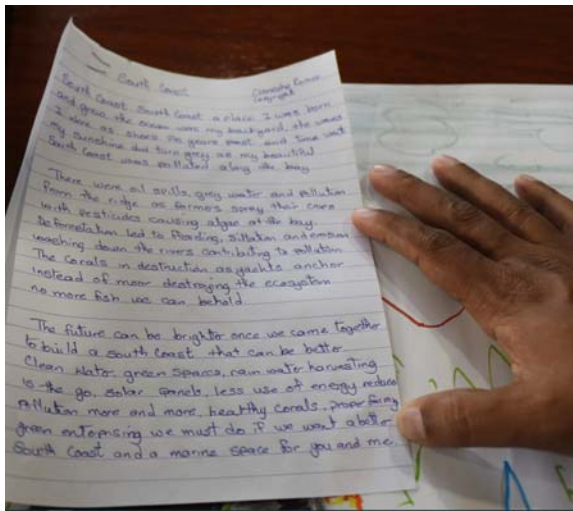 South Coast
Copyright
South Coast South Coast a place I was born
and grew, the ocean were my backyard, the waves
I wore as shoes the years past and time went
my sunshine did turn grey as my beautiful
South Coast was polluted along the bay
There were oil spills, grey water and pollution
from the ridge as farmers spray their crops
with pesticides causing algae at the bay.
Deforestation led to flooding, siltation and erosion
washing down the rivers contributing to pollution
The corals in destruction as yachts anchor
instead of moor destroying the ecosystem
no more fish we can behold.
The future can be brighter once we came together
to build a south Coast that can be better
Clean Water, green spaces, rain water harvesting
is the go, solar panels, less use of energy reduce
pollution more and more, healthy corals, proper farming
green enterprising we must do if we want a better
South Coast and a marine space for you and me.